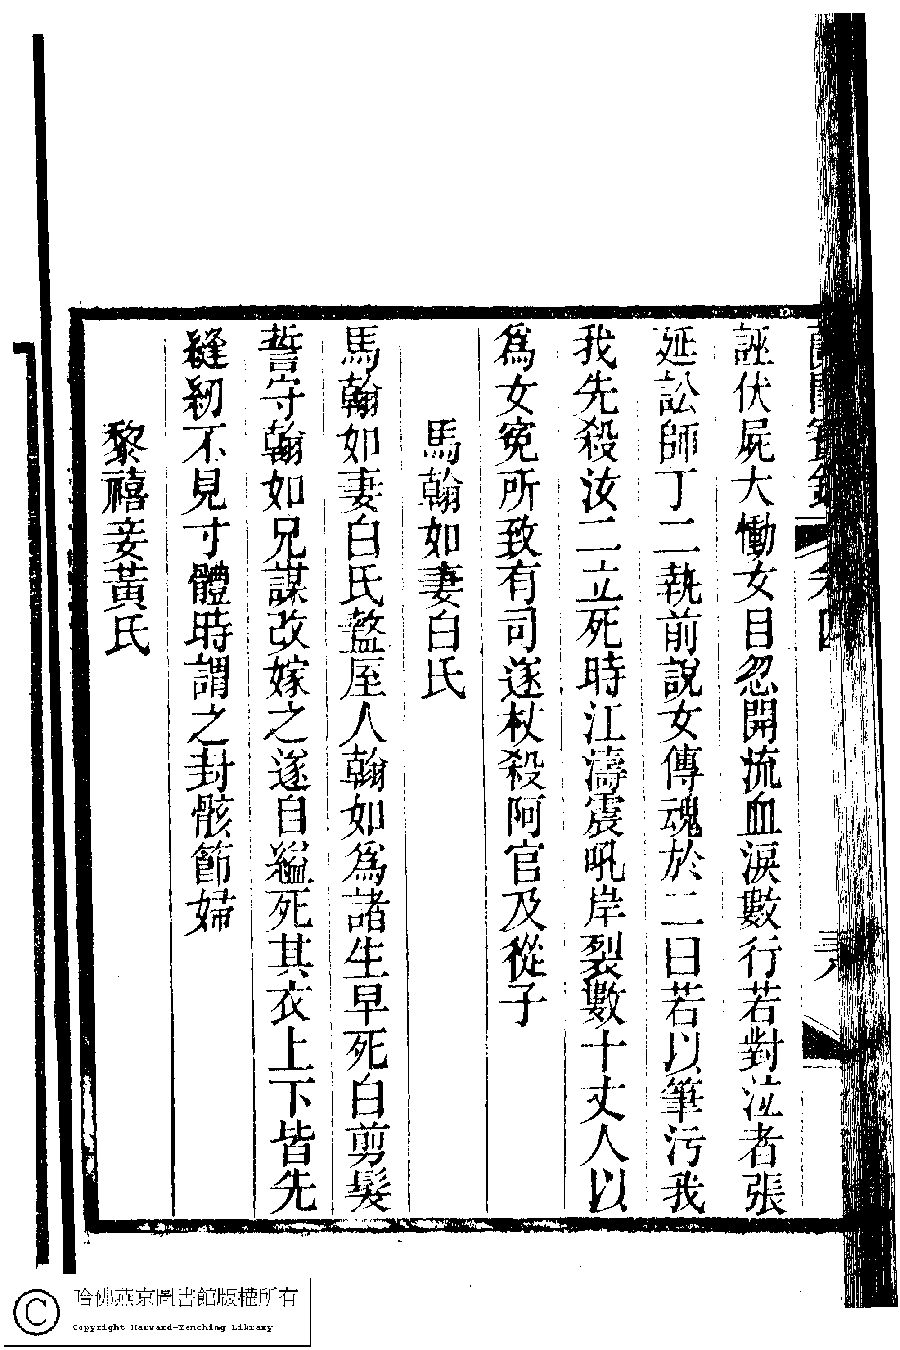 蘭閨寶錄 卷四 三八
誣伏屍大慟女目忽開流血淚數行若對泣者張
延訟師丁二執前說女傳魂於二曰若以筆污我
我先殺汝二立死時江濤震吼岸裂數十丈人以
爲女寃所致有司遂杖殺阿官及從子
馬翰如妻白氏
馬翰如妻白氏盩厔人翰如爲諸生早死白剪髮
誓守翰如兄謀改嫁之遂自縊死其衣上下皆先
縫紉不見寸體時謂之封骸節婦
黎禧妾黃氏
哈佛燕京圖書館版權所有
Copyright Harvard-Yenching Library